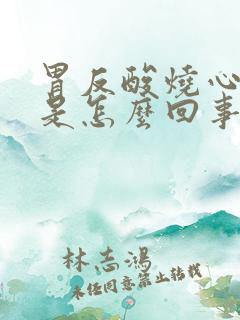 胃反酸燒心
是怎麼回事
林志鴻
未经同意禁止转载